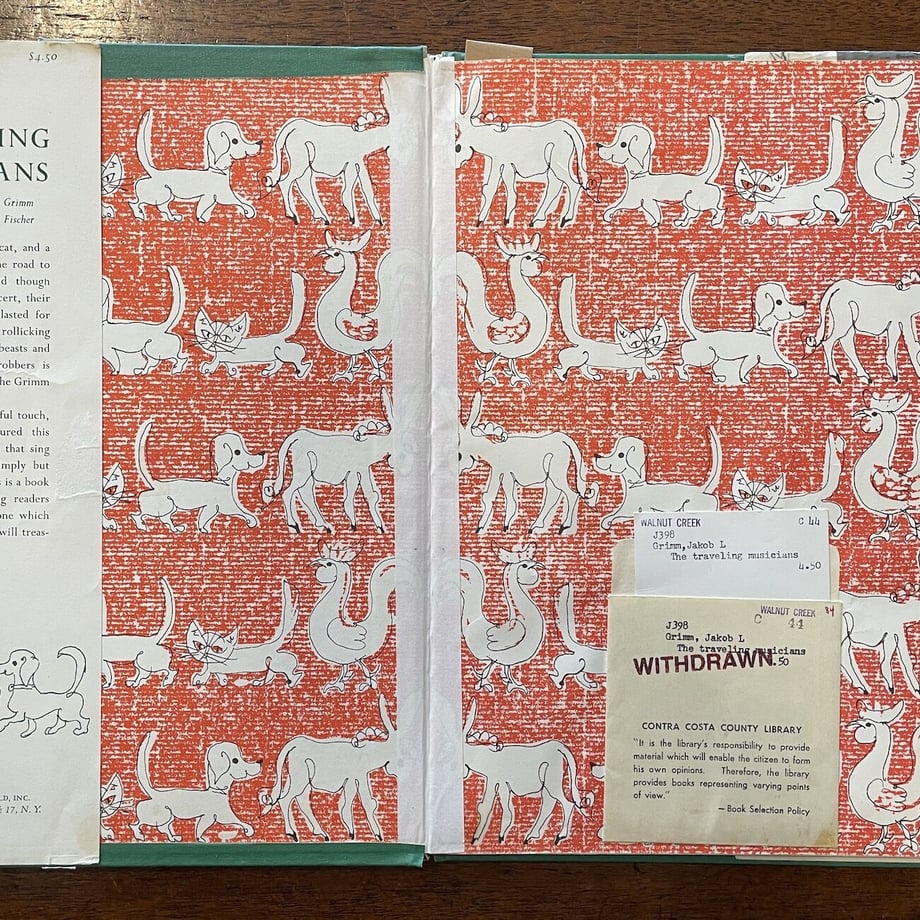 $4.50
ING
ANS
Grimm
Fischer
cat, and a
e road to
d though
cert, their
lasted for
rollicking
beasts and
robbers is
he Grimm
ful touch,
ured this
that sing
mply but
s is a book
g readers
one which
will treas-
LD, INC.
17, N. Y.
WALNUT CREEK C 44
J398
Grimm,Jakob L
The traveling musicians
4.50
WALNUT CREEK 84
C 44
J398
Grimm, Jakob L
The traveling musicians
WITHDRAWN .50
CONTRA COSTA COUNTY LIBRARY
"It is the library's responsibility to provide
material which will enable the citizen to form
his own opinions. Therefore, the library
provides books representing varying points
of view."
—Book Selection Policy